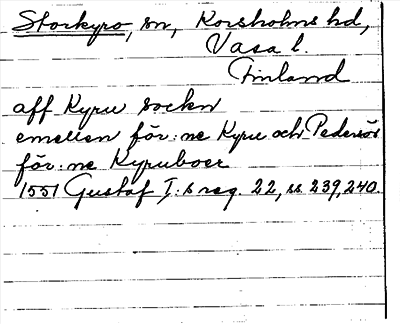 Storkyro, sn, Korsholms hd,
Vasa l.
Finland
aff Kyru sockn
emellen för:ne Kyru och Pedersör
för:ne Kyruboer
1551 Gustaf I:s reg. 22, ss. 239, 240.